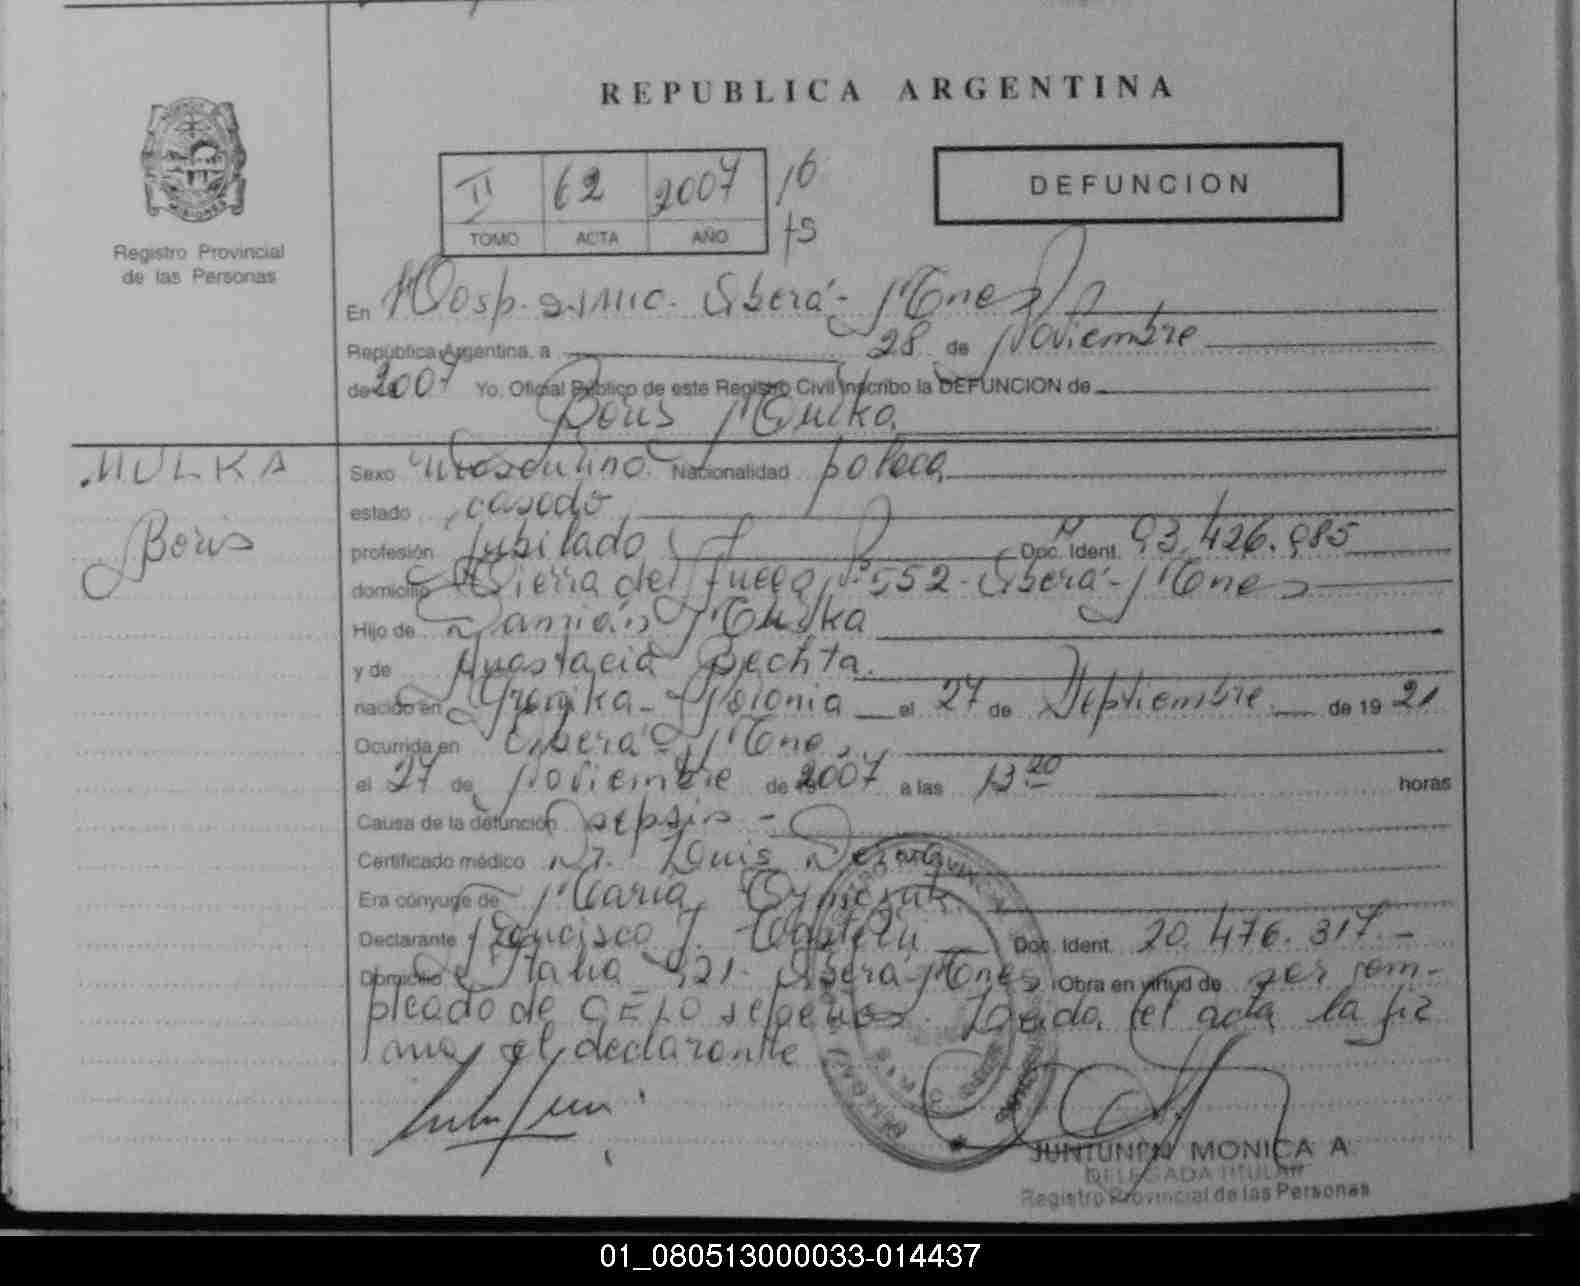 REPUBLICA ARGENTINA
MISIONES
Registro Provincial
de las Personas
II 62 2007 16
TOMO ACTA AÑO 75
DEFUNCION
En Hosp. Oberá - Mnes
República Argentina, a 28 de Noviembre
de 2007 Yo. Oficial Público de este Registro Civil inscribo la DEFUNCION de
Boris Mulka
MULKA
Boris
Sexo Masculino Nacionalidad polaca
estado casado
profesión Jubilado Doc. Ident. 93.426.985
domicilio Tierra del Fuego Nº 552 - Oberá - Mnes
Hijo de Damián Mulka
y de Anastacia Bechta
nacido en Polonia el 27 de Septiembre de 1921
Ocurrida en Oberá - Mnes
el 27 de Noviembre de 2007 a las 13 20 horas
Causa de la defunción sepsis -
Certificado médico Dr. Luis
Era cónyuge de Maria
Declarante Francisco J. Doc. Ident. 20.476.317 -
Domicilio Italia 421 - Oberá - Mnes Obra en virtud de ser em-
pleado de CELO sepelios. Leída el acta la fir
ma el declarante
JUNTUNEN MONICA A
DELEGADA TITULAR
Registro Provincial de las Personas
01_080513000033-014437